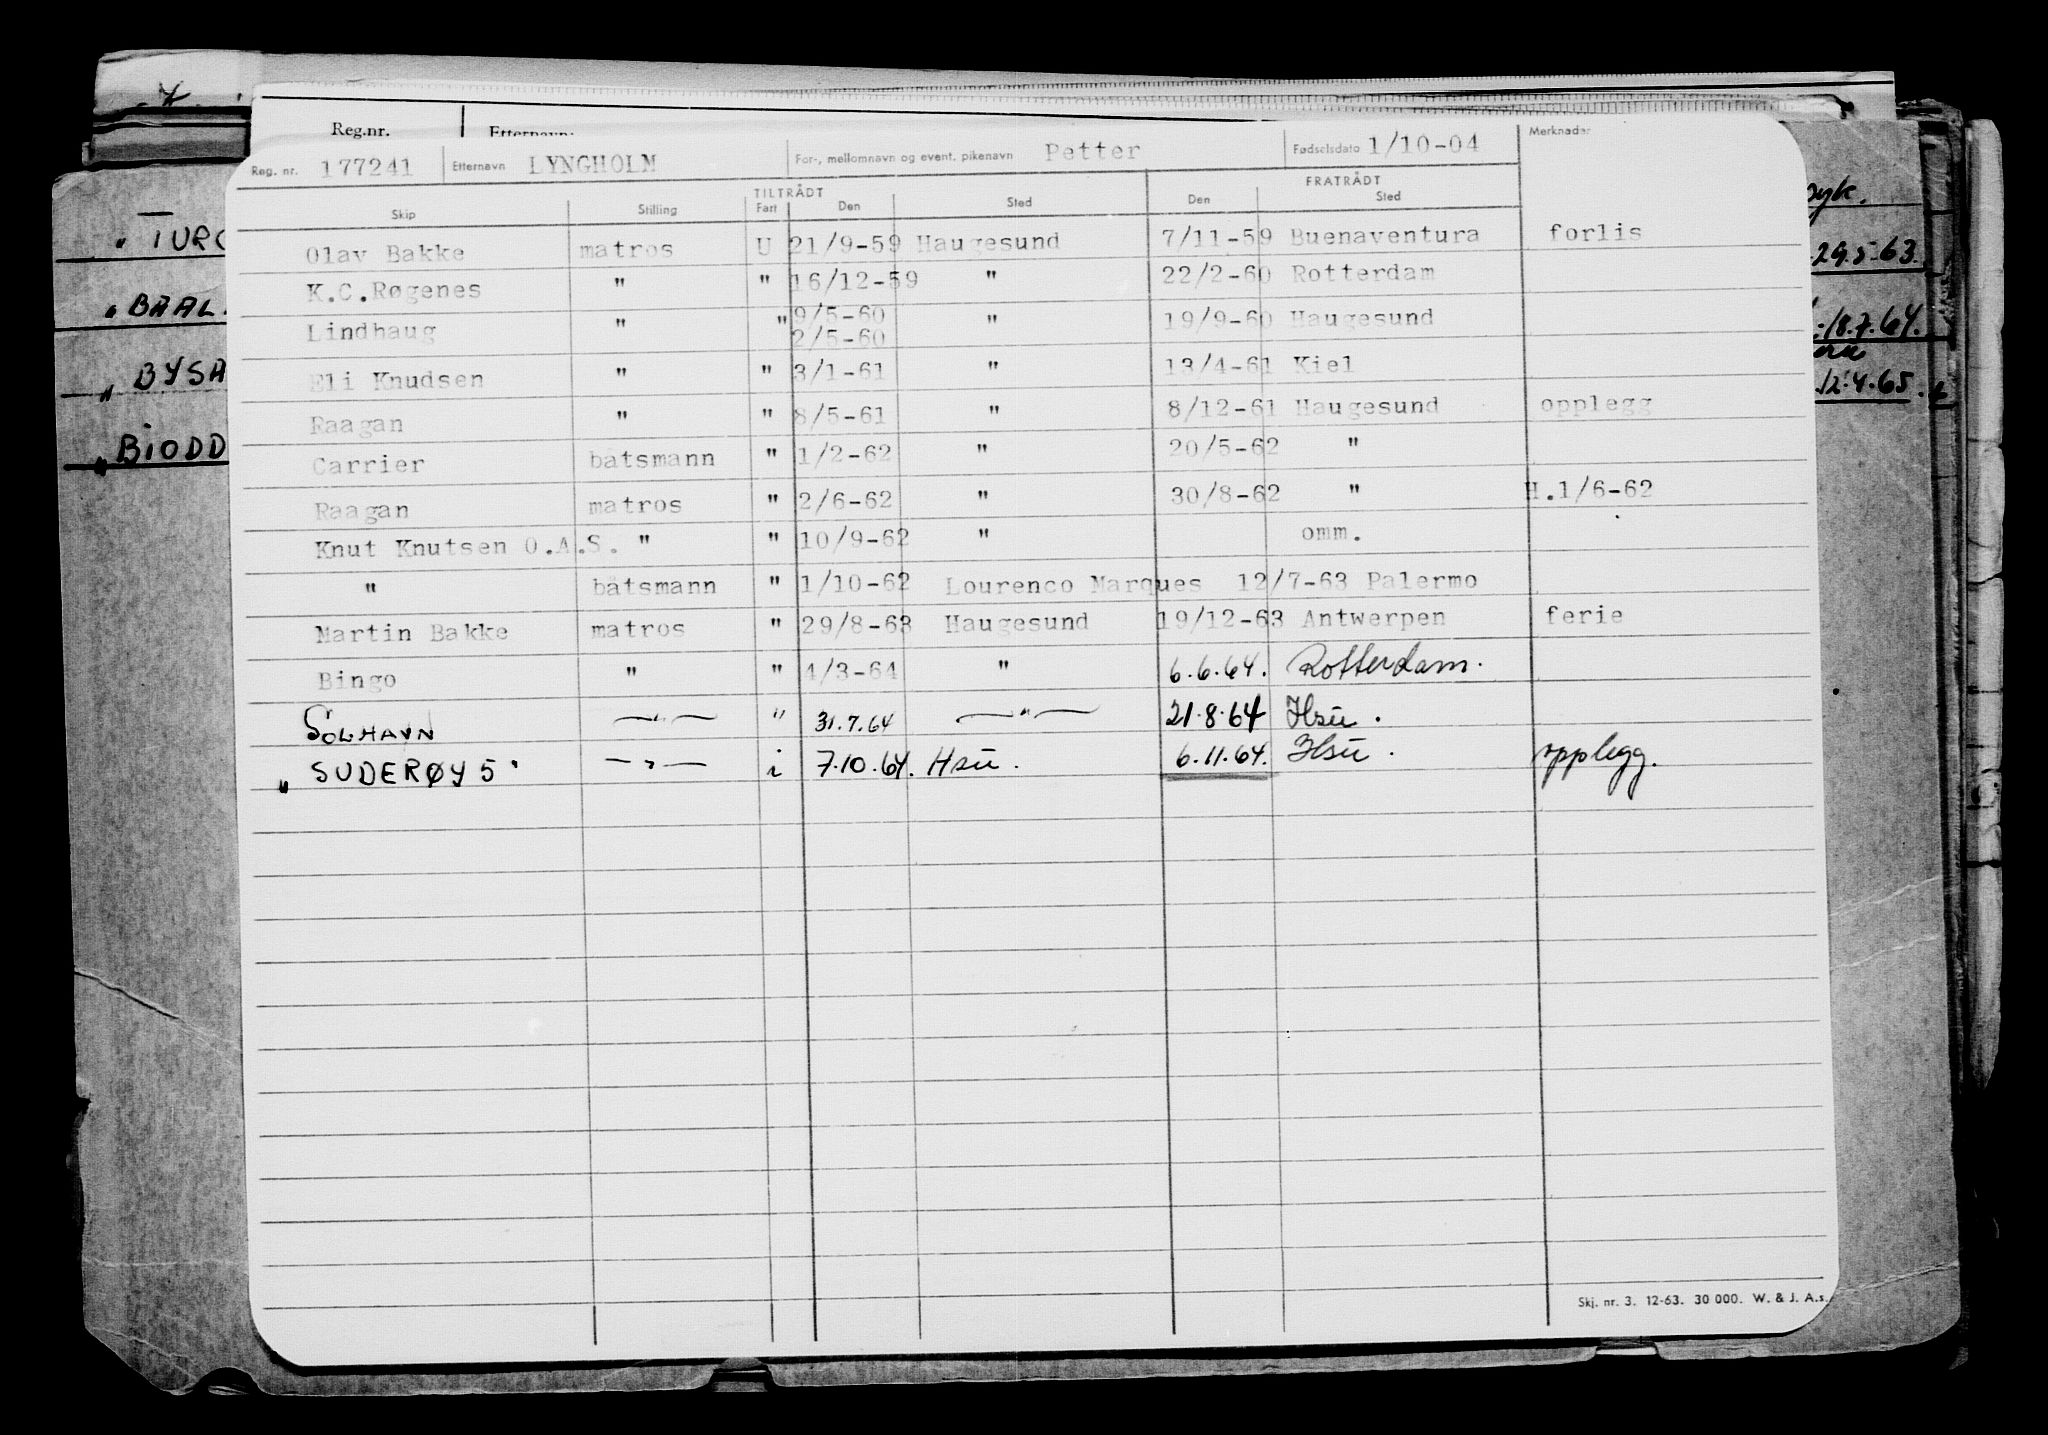 Reg.nr. Etternavn:
Reg. nr. 177241 Etternavn LYNGHOLM For-, mellomnavn og event. pikenavn Petter Fødselsdato 1/10-04 Merknader
TILTRÅDT FRATRÅDT
Skip Stilling Fart Den Sted Den Sted
Olav Bakke matros U 21/9-59 Haugesund 7/11-59 Buenaventura forlis
K.C.Røgenes " " 16/12-59 " 22/2-60 Rotterdam
9/5-60
Lindhaug " " 2/5-60 " 19/9-60 Haugesund
Eli Knudsen " " 3/1-61 " 13/4-61 Kiel
Raagan " " 8/5-61 " 8/12-61 Haugesund opplegg
Carrier båtsmann " 1/2-62 " 20/5-62 "
Raagan matros " 2/6-62 " 30/8-62 " H.1/6-62
Knut Knutsen O.A.S. " " 10/9-62 " omm.
" båtsmann " 1/10-62 Lourenco Marques 12/7-63 Palermo
Martin Bakke matros " 29/8-63 Haugesund 19/12-63 Antwerpen ferie
Bingo " " 4/3-64 " 6.6.64. Rotterdam.
SOLHAVN —"— " 31.7.64 —"— 21.8.64 Hsu.
" SUDERØY 5" —"— i 7.10.64. Hsu. 6.11.64. Hsu. opplegg.
Skj. nr. 3. 12-63. 30 000. W. & J. A.s.
" TURC
" BAAL
" BYSA
" BIODD
29.5.63.
18.7.64.
12.4.65.